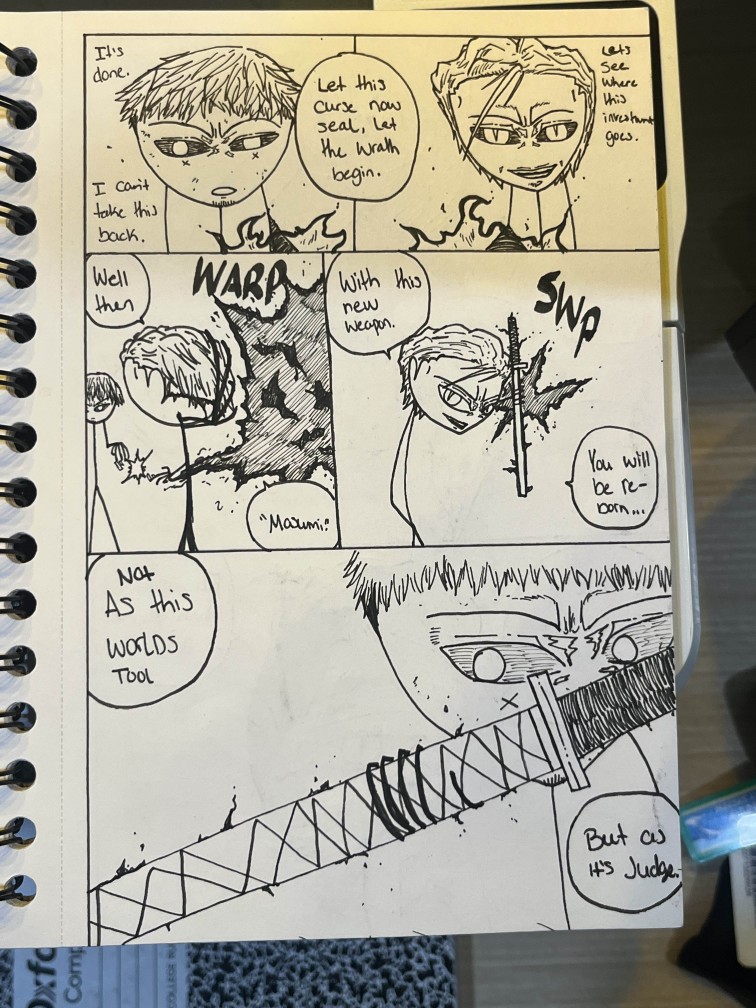 It's
done.
I can't
take this
back.
Let this
curse now
seal, Let
the wrath
begin.
Lets
See
where
this
investment
goes.
Well
then
WARP
"Masumi."
With this
new
weapon.
SWP
You will
be re-
born...
Not
As this
WORLDS
TOOL
But as
it's Judge.
Oxfo
Comp
COLLEGE